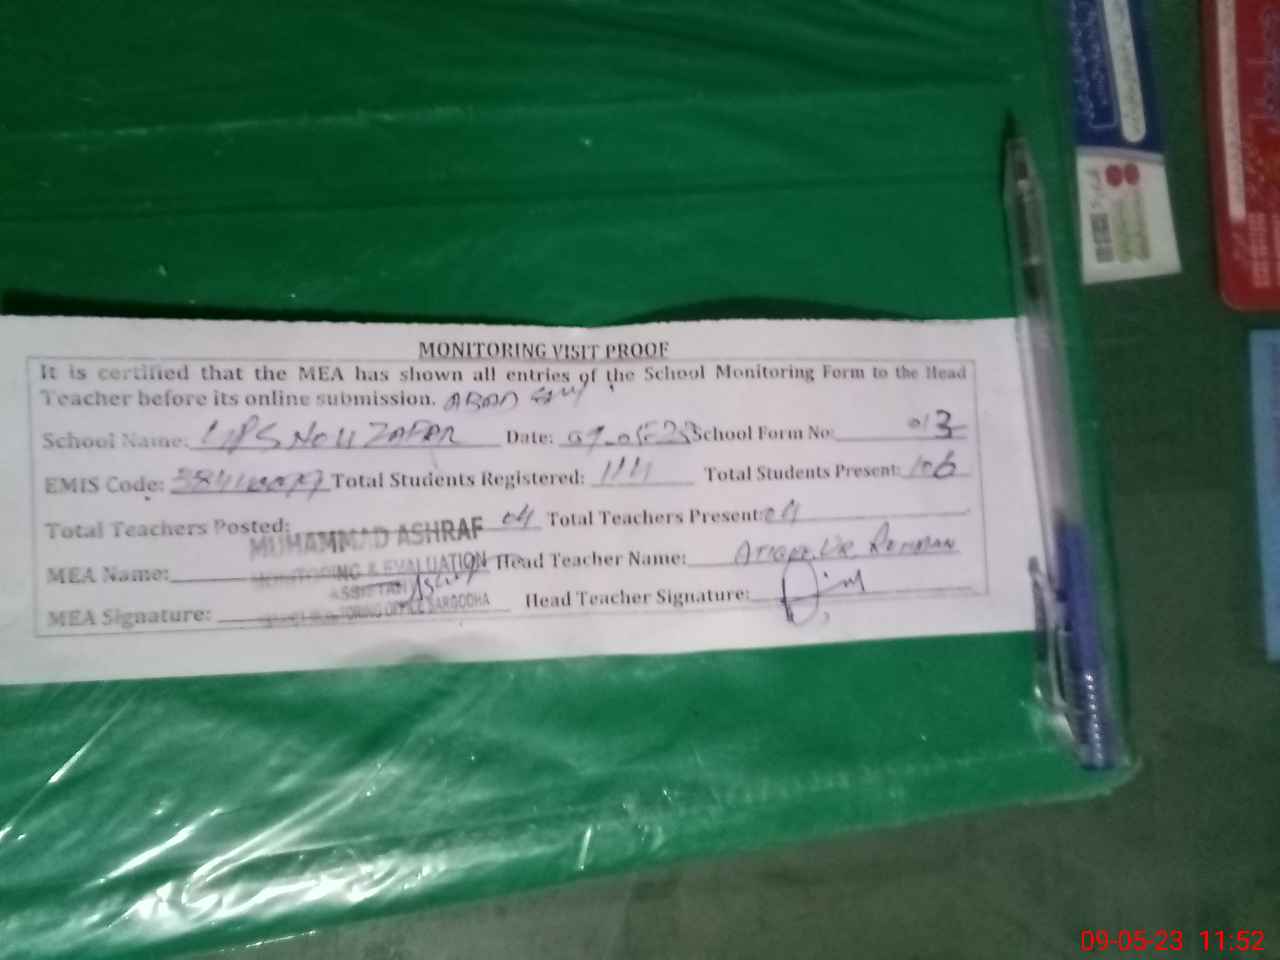 MONITORING VISIT PROOF
It is certified that the MEA has shown all entries of the School Monitoring Form to the Head
Teacher before its online submission.
School Name: GPS Date: 09-05-23 School Form No: 013
EMIS Code: Total Students Registered: 114 Total Students Present: 106
Total Teachers Posted: 04 Total Teachers Present: 04
MUHAMMAD ASHRAF
MEA Name: MONITORING & EVALUATION Head Teacher Name: Ur Rehman
ASSISTANT
MEA Signature: MONITORING OFFICE SARGODHA Head Teacher Signature:
09-05-23 11:52